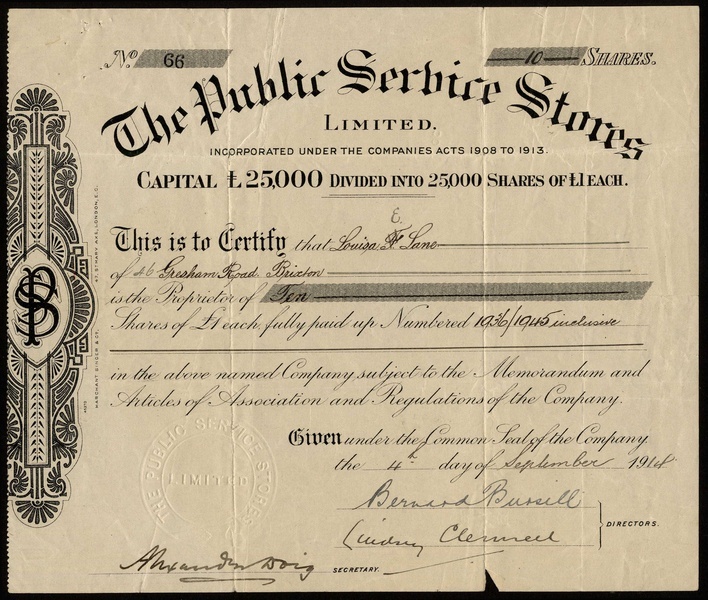 No. 66
10 SHARES.
The Public Service Stores
LIMITED.
INCORPORATED UNDER THE COMPANIES ACTS 1908 TO 1913.
CAPITAL £25,000 DIVIDED INTO 25,000 SHARES OF £1 EACH.
E.
This is to Certify that Louisa F Lane
of 46 Gresham Road Brixton
is the Proprietor of Ten
Shares of £1 each, fully paid up Numbered 1936/1945 inclusive
in the above named Company, subject to the Memorandum and
Articles of Association and Regulations of the Company.
Given under the Common Seal of the Company.
the 4th day of September 1914
Bernard Bussell
Lindsey
DIRECTORS.
Alexander Doig
SECRETARY.
THE PUBLIC SERVICE STORES
LIMITED
PSS
MARCHANT SINGER & CO. ST. MARY AXE, LONDON, E.C.